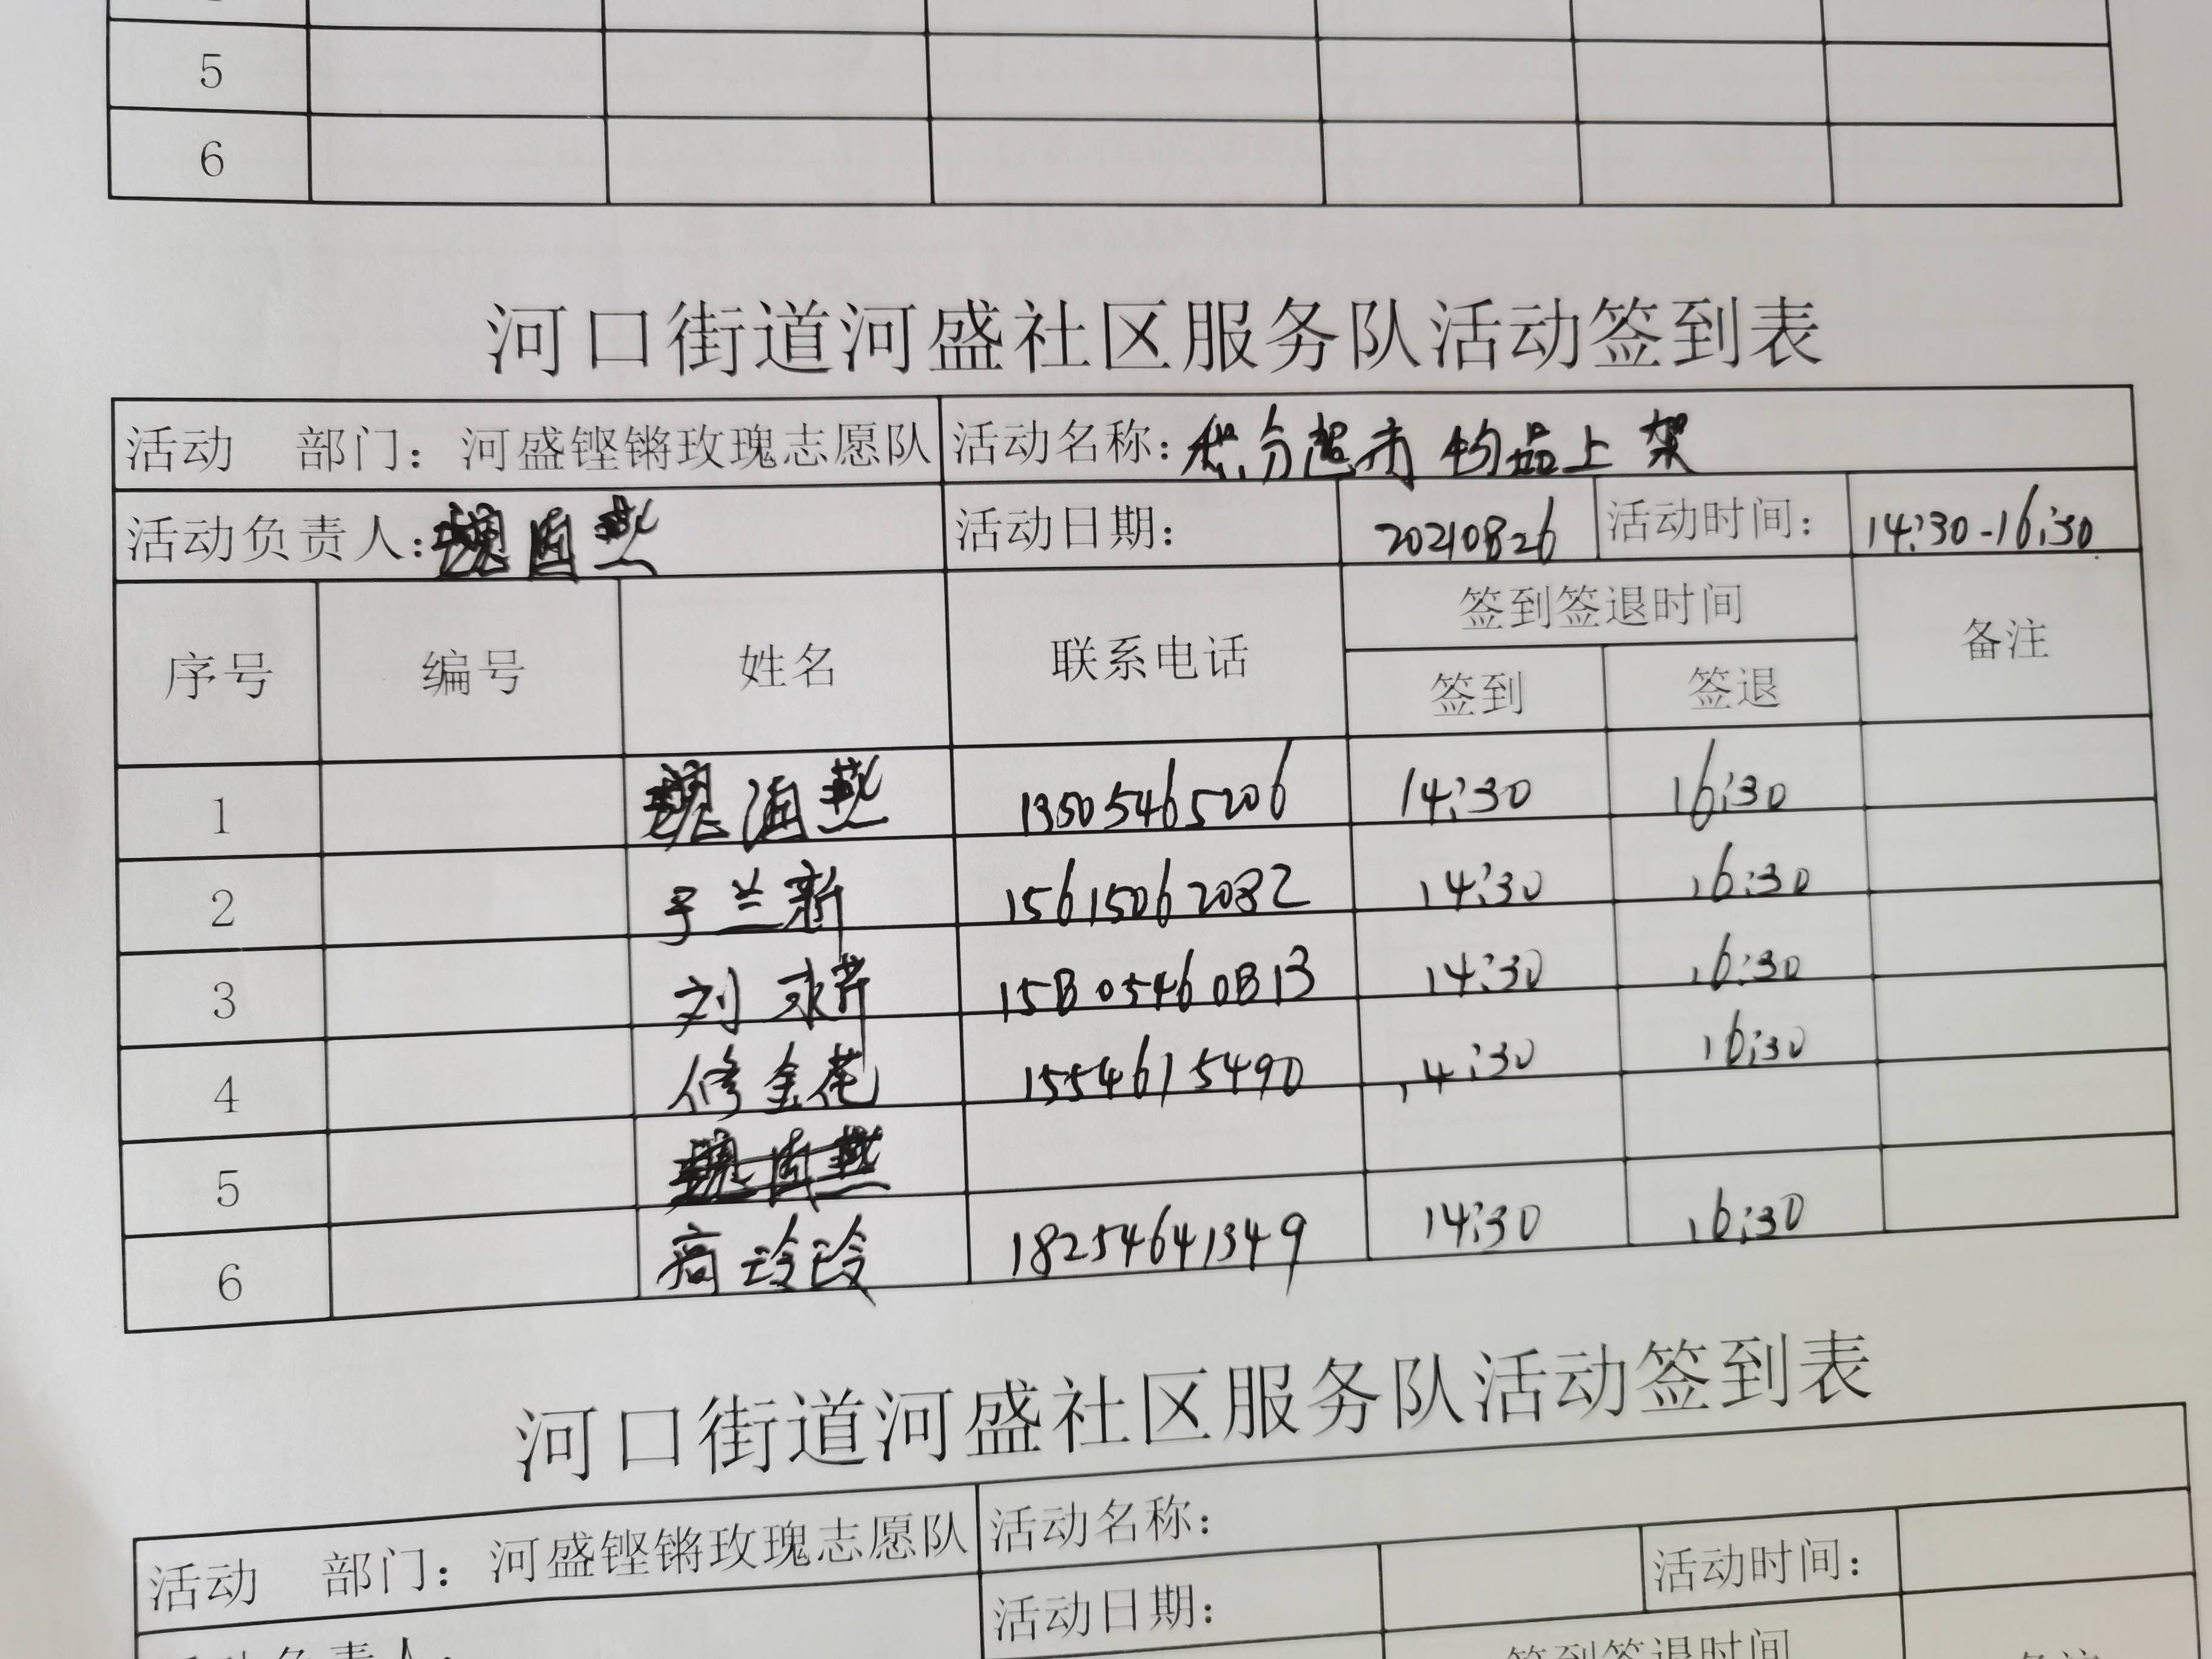 5
6
河口街道河盛社区服务队活动签到表
活动 部门：河盛铿锵玫瑰志愿队 活动名称：积分超市物品上架
活动负责人：魏海燕 活动日期： 20210826 活动时间： 14:30-16:30
序号 编号 姓名 联系电话 签到签退时间 备注
签到 签退
1 魏海燕 13505465206 14:30 16:30
2 于兰新 15615062082 14:30 16:30
3 刘 14:30 16:30
4 修金花 1554615490 14:30 16:30
5 魏海燕
6 商玲玲 18254641349 14:30 16:30
河口街道河盛社区服务队活动签到表
活动 部门：河盛铿锵玫瑰志愿队 活动名称：
活动日期： 活动时间：
活动负责人：
签到签退时间
备注